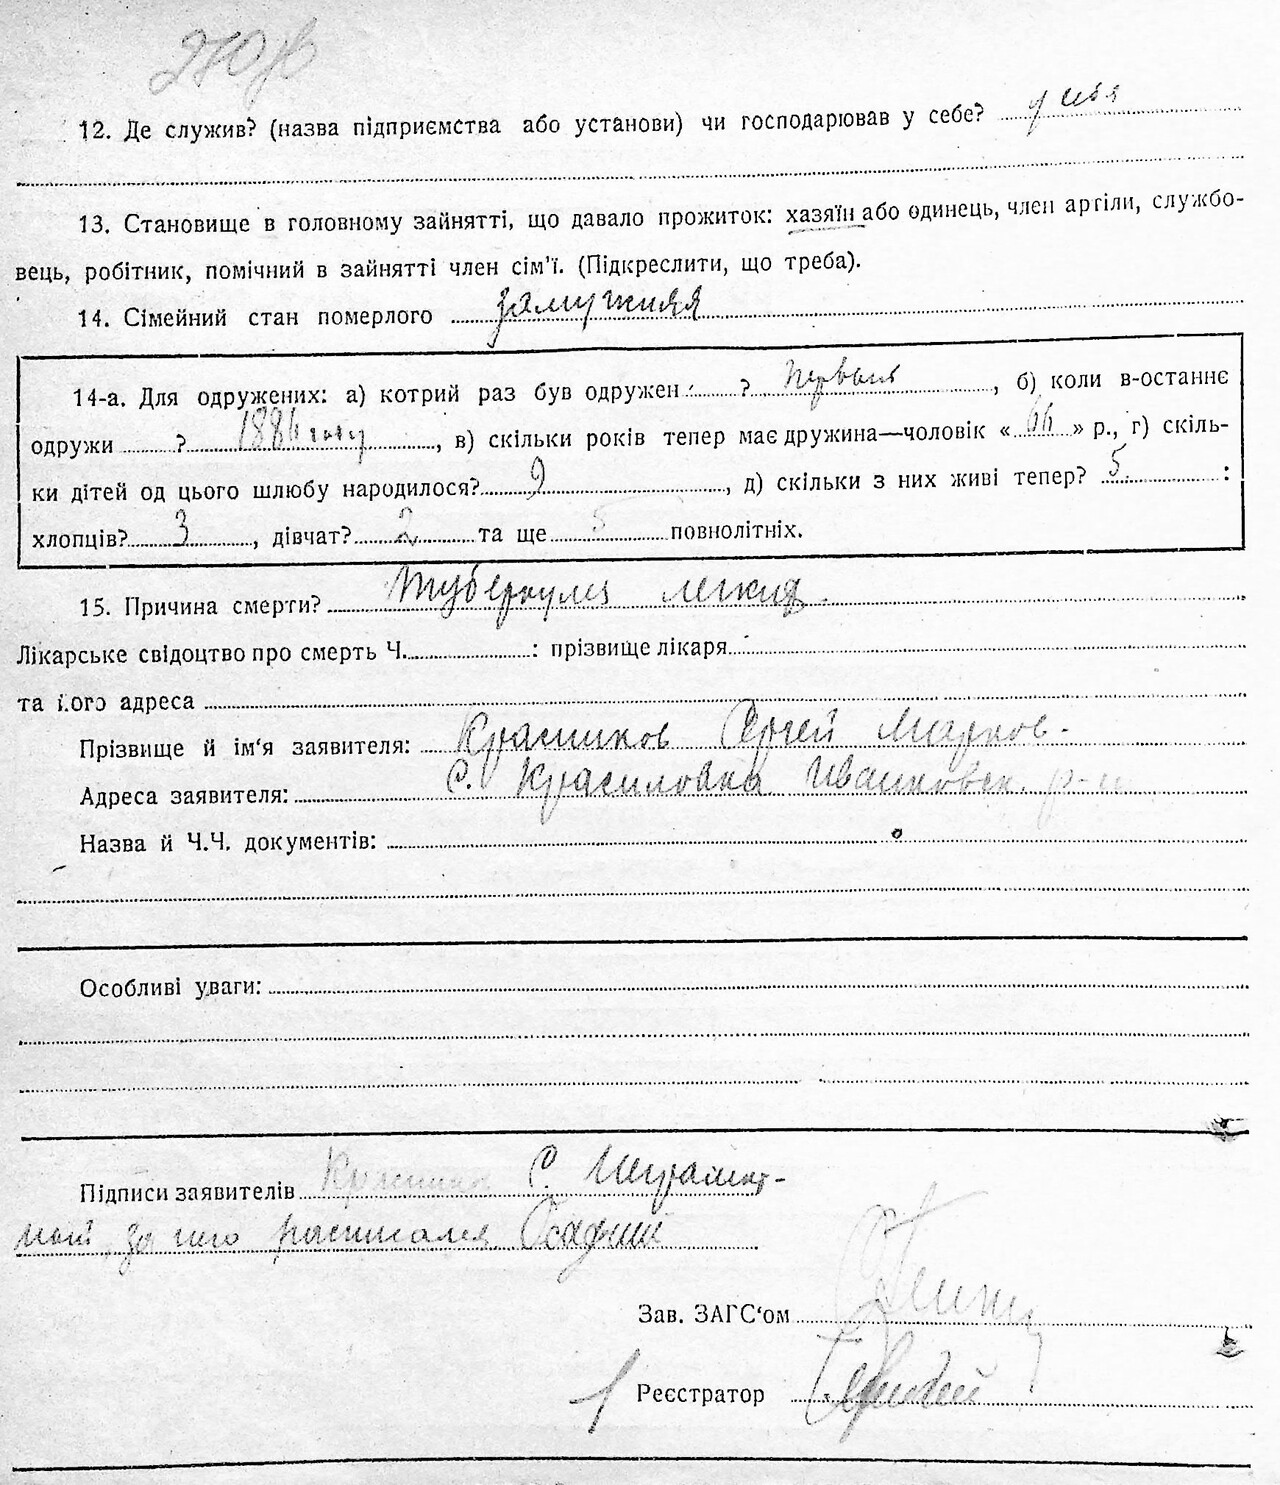 12. Де служив? (назва підприємства або установи) чи господарював у себе? у себя
13. Становище в головному зайнятті, що давало прожиток: хазяїн або одинець, член артіли, службо-
вець, робітник, помічний в зайнятті член сім'ї. (Підкреслити, що треба).
14. Сімейний стан померлого замужняя
14-а. Для одружених: а) котрий раз був одружен ? первый, б) коли в-останнє
одружи ? 1886 году, в) скільки років тепер має дружина—чоловік «66» р., г) скіль-
ки дітей од цього шлюбу народилося? 9, д) скільки з них живі тепер? 5 :
хлопців? 3, дівчат? 2 та ще 5 повнолітніх.
15. Причина смерти? Туберкулез легких
Лікарське свідоцтво про смерть Ч. : прізвище лікаря
та його адреса
Прізвище й ім'я заявителя: Красников Сергей Марков.
Адреса заявителя: с. Красиловка Иванковск. р-н
Назва й Ч.Ч. документів:
Особливі уваги:
Підписи заявителів С. Неграмот-
ный за него расписался
Зав. ЗАГС'ом
Реєстратор